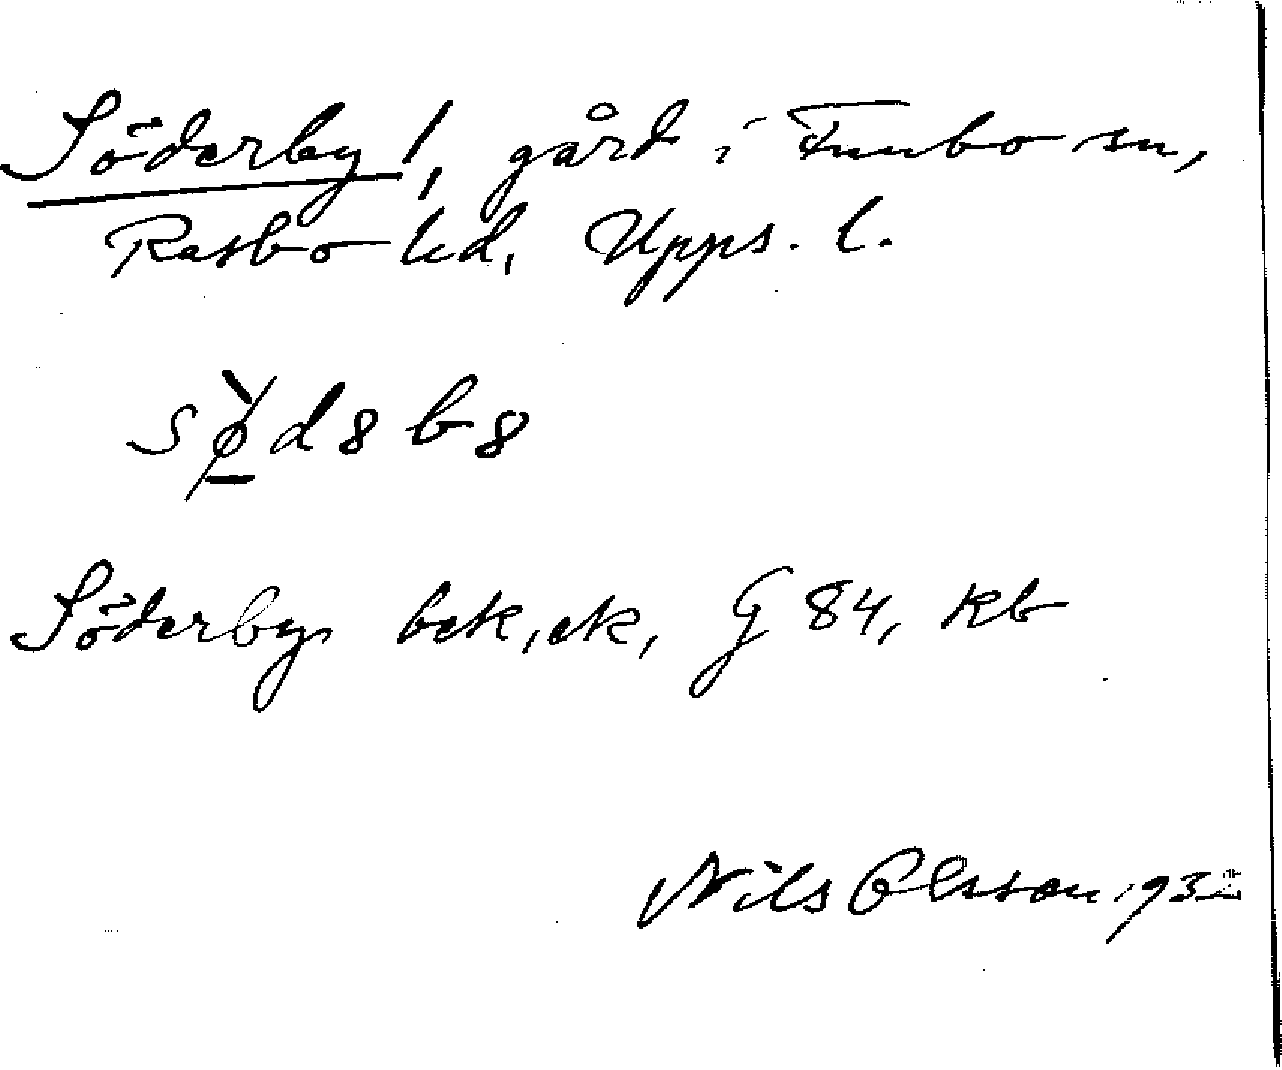 Söderby 1, gård i Funbo sn,
Rasbo hd, Upps. l.
Söderby, bek, ek, G 84, kb
Nils Olsson 1932